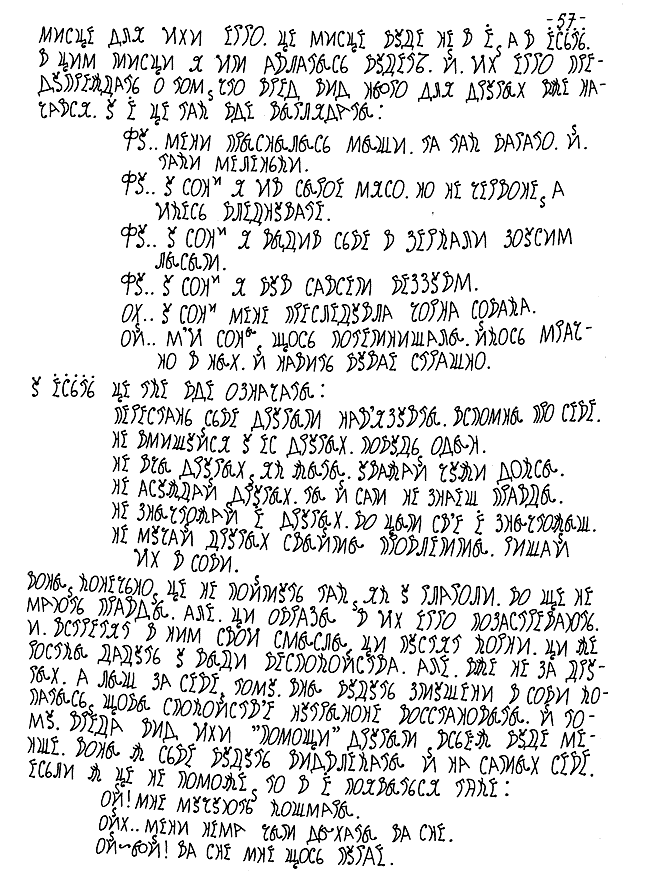 -57-
МИСЦЕ ДЛЯ ИХИ ЕГГО. ЦЕ МИСЦЕ БУДЕ НЕ В Ё, А В ЁСЬТЬ.
В ЦИМ МИСЦИ Я ИМ БУДЕТЬ. Й. ИХ ЕГГО ПРЕ-
ДУПРЕЖДАТЬ О ТОМ, ЧТО ВРЕД ВИД НЬОГО ДЛЯ ДРУГЫХ ВЖЕ НА-
ЧАВСЯ. У Ё ЦЕ ТАК БДЕ ВЫГЛЯДАТЫ:
ФУ.. МЕНИ ПРЫСНЫЛЫСЬ МЫШИ. ТА ТАК БАГАТО. Й.
ТАКИ МЕЛЕНЬКИ.
ФУ.. У СОНИ Я ИВ СЫРОЕ МЯСО. НО НЕ ЧЕРВОНЕ, А
ИКЕСЬ БЛЕДНУВАТЕ.
ФУ.. У СОНИ Я ВЫДИВ СЕБЕ В ЗЕРКАЛИ ЗОУСИМ
ЛЫСЫМ.
ФУ.. У СОНИ Я БУВ САВСЕМ БЕЗЗУБМ.
ОХ.. У СОНИ МЕНЕ ПРЕСЛЕДУВЛА ЧОРНА СОБАКА.
ОЙ.. М'Й СОНЫ, ЩОСЬ ПОТЕМНИШАЛЫ. ЙКОСЬ МРАЧ-
НО В НЫХ. Й НАВИТЬ БУВАЕ СТРАШНО.
У ЁСЬТЬ ЦЕ ТКЕ БДЕ ОЗНАЧАТЫ:
ПЕРЕСТАНЬ СЕБЕ ДРУГЫМИ НАВ'ЯЗУВТЫ. ВСПОМНЫ ПРО СЕБЕ.
НЕ ВМИШУЙСЯ У ЕС ДРУГЫХ. ПОБУДЬ ОДЫН.
НЕ ВЧЫ ДРУГЫХ, ЯК ЖЫТЫ. УВАЖАЙ ЧУЖИ ДОЛСЫ.
НЕ АСУЖДАЙ ДРУГЫХ. ТЫ Й САМ НЕ ЗНАЕШ ПРАВДЫ.
НЕ ЗНЫЧТОЖАЙ Ё ДРУГЫХ. БО ЦЫМ СВ'Е Ё ЗНЫЧТОЖЫШ.
НЕ МУЧАЙ ДРУГЫХ СВАЙИМЫ ПРОБЛЕМИМЫ. РИШАЙ
ИХ В СОБИ.
ВОНЫ, КОНЕЧЬНО, ЦЕ НЕ ПОЙМУТЬ ТАК, ЯК У ГЛАГОЛИ. БО ЩЕ НЕ
МАЮТЬ ПРАВДЫ. АЛЕ. ЦИ ОБРАЗЫ В ИХ ЕГГО ПОЗАСТРЕВАЮТЬ.
И. ВСТРЕТЯТ В НИМ СВОИ СМЫСЛЫ, ЦИ ПУСТЯТ КОРНИ. ЦИ ЖЕ
РОСТКЫ ДАДУТЬ У ВЫДИ БЕСПОКОЙСТВА. АЛЕ. ВЖЕ НЕ ЗА ДРУ-
ГЫХ. А ЛЫШ ЗА СЕБЕ. ТОМУ. ВНЫ БУДУТЬ ЗМУШЕНИ В СОБИ КО-
ПАТЫСЬ, ЩОБЫ СПОКОЙСТВ'Е НУТРЯНОНЕ ВОССТАНОВЫТЫ. Й ТО-
МУ. ВРЕДА ВИД ИХИ "ПОМОЩИ" ДРУГЫМ, ВСЬЕЖ БУДЕ МЕ-
НШЕ. ВОНЫ Ж СЕБЕ БУДУТЬ ВИДВЛЕКАТЫ Й НА САМЫХ СЕБЕ.
ЕСЬЛИ Ж ЦЕ НЕ ПОМОЖЕ, ТО В Ё ПОЯВЫТЬСЯ ТАКЕ:
ОЙ! МНЕ МУЧУЮТЬ КОШМАРЫ.
ОЙХ.. МЕНИ НЕМА ЧЫМ ДЫХАТЫ ВА СНЕ.
ОЙ-ВОЙ! ВА СНЕ МНЕ ЩОСЬ ПУГАЕ.